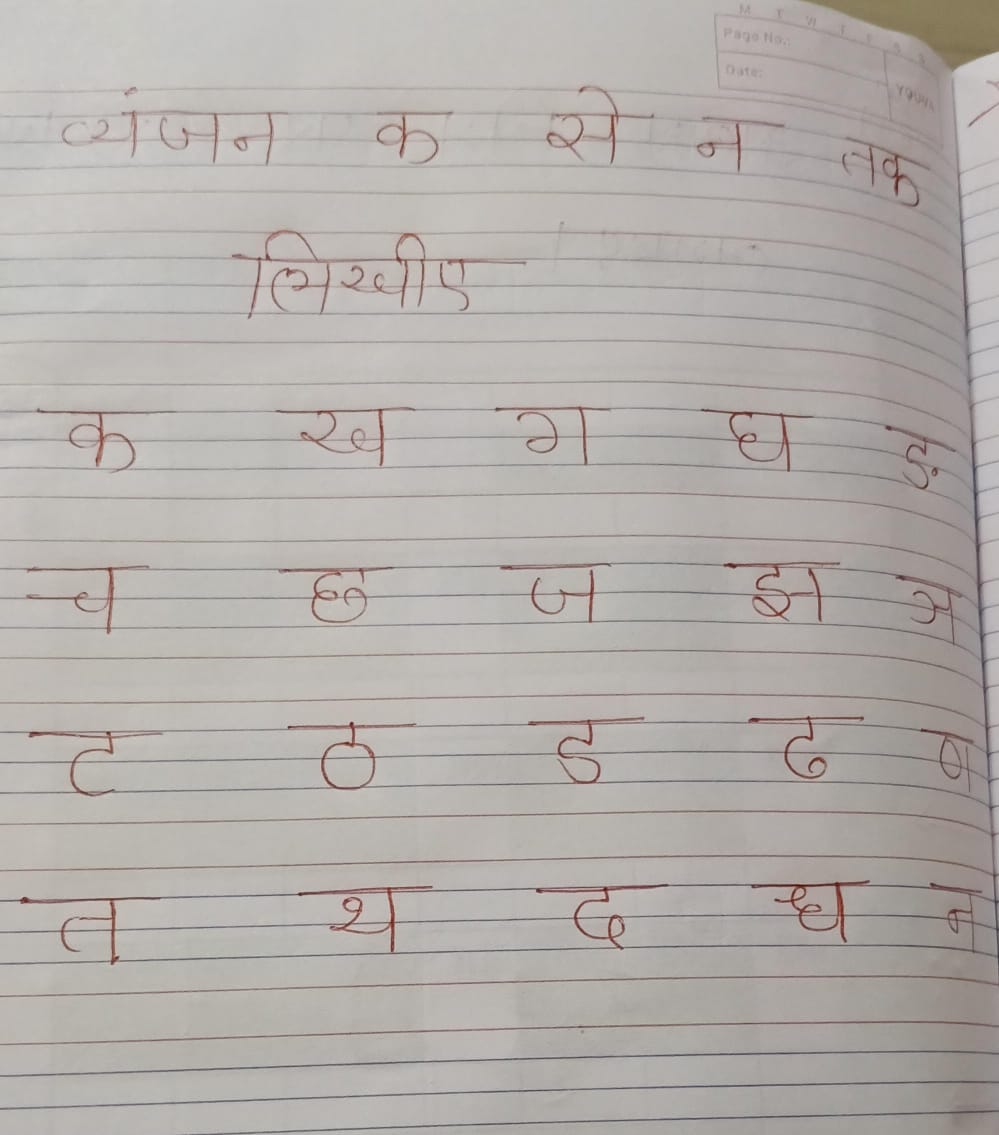 M T W T F S S
Page No.:
Date:
YOUVA
व्यंजन क से न तक
लिखीए
क ख ग घ ङ
च छ ज झ ञ
ट ठ ड ढ ण
त थ द ध न